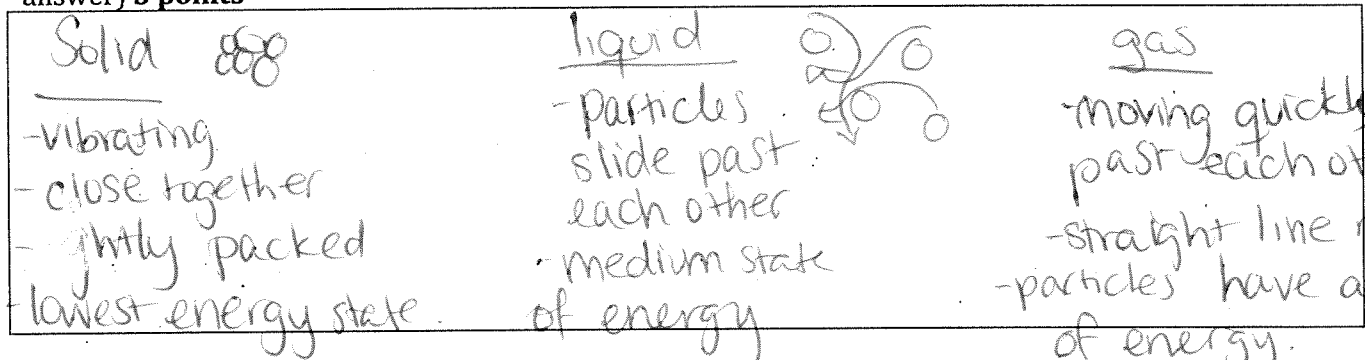 answery 3 points
Solid
-vibrating
-close together
-ightly packed
-lowest energy state.
liquid
-particles
slide past
each other
-medium state
of energy
gas
-moving quickl
past each ot
-straight line
-particles have a
of energy.